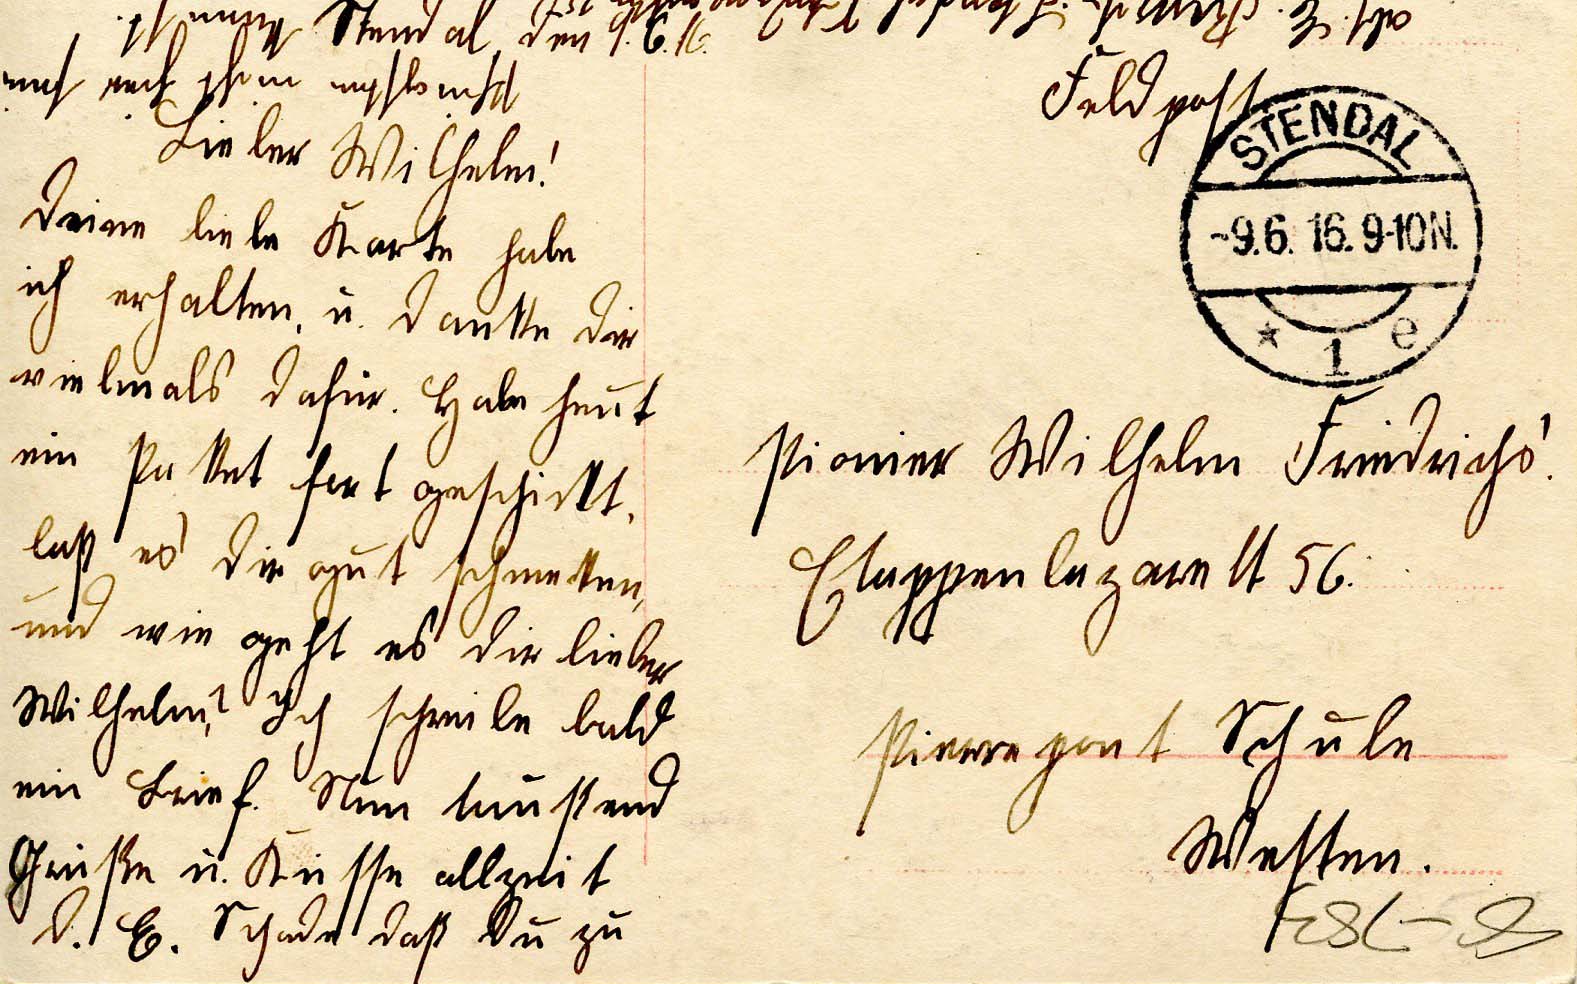 Stendal, den 9.6.16.
Lieber Wilhelm!
Deine liebe Karte habe
ich erhalten, u. danke dir
vielmals dafür. Habe heut
ein Paket fort geschickt,
laß es dir gut schmecken,
und wie geht es dir lieber
Wilhelm? Ich schreibe bald
ein Brief. Nun taußend
Grüße u. Küsse allzeit
d. E. Schade daß Du zu
Feldpost
STENDAL
-9.6.16.9-10N.
* 1 e
Pionier Wilhelm Friedrichs.
Etappenlazarett 56.
Pierrepont Schule
Westen.